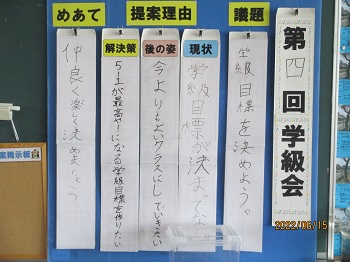 第四回学級会
議題
学級目標を決めよう。
提案理由
現状
学級目標が決まってな
後の姿
今よりもよいクラスにしていきたい
解決策
5-1が最高やーになる学級目標を作りたい
めあて
仲良く楽しく決めましょう
掲示板
2022/06/15